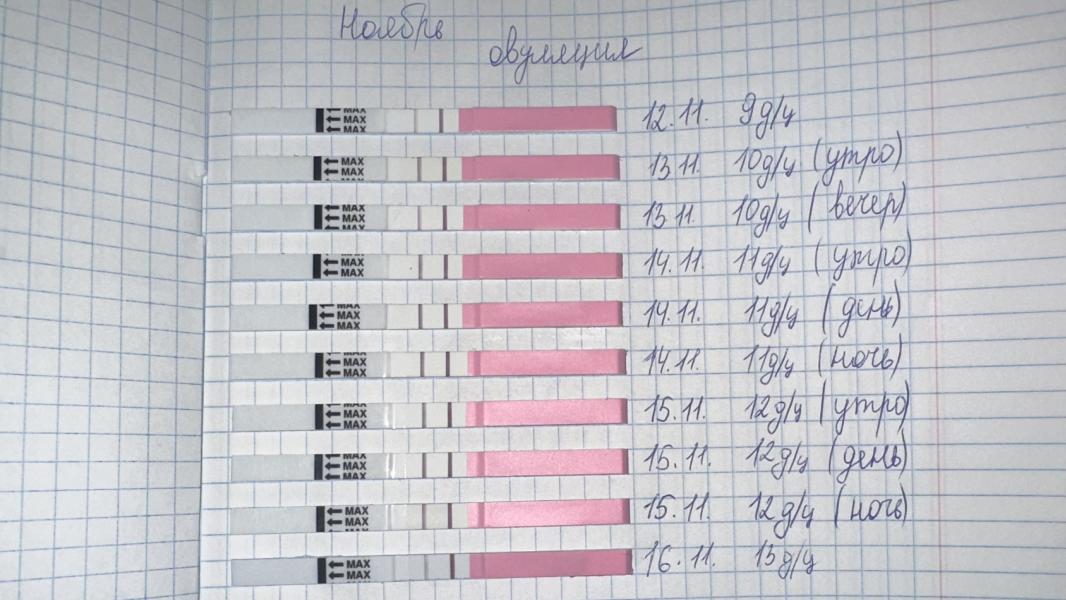 Ноябрь
овуляция
MAX
MAX
MAX
12.11. 9д/ц
MAX
MAX
13 11. 10д/ц (утро)
MAX
MAX
MAX
13 11. 10д/ц (вечер)
MAX
MAX
14.11. 11д/ц (утро)
MAX
MAX
MAX
14.11. 11д/ц (день)
MAX
MAX
MAX
14.11. 11д/ц (ночь)
MAX
MAX
MAX
15.11. 12д/ц (утро)
MAX
MAX
MAX
15.11. 12д/ц (день)
MAX
MAX
15.11. 12д/ц (ночь)
MAX
MAX
16.11. 13д/ц